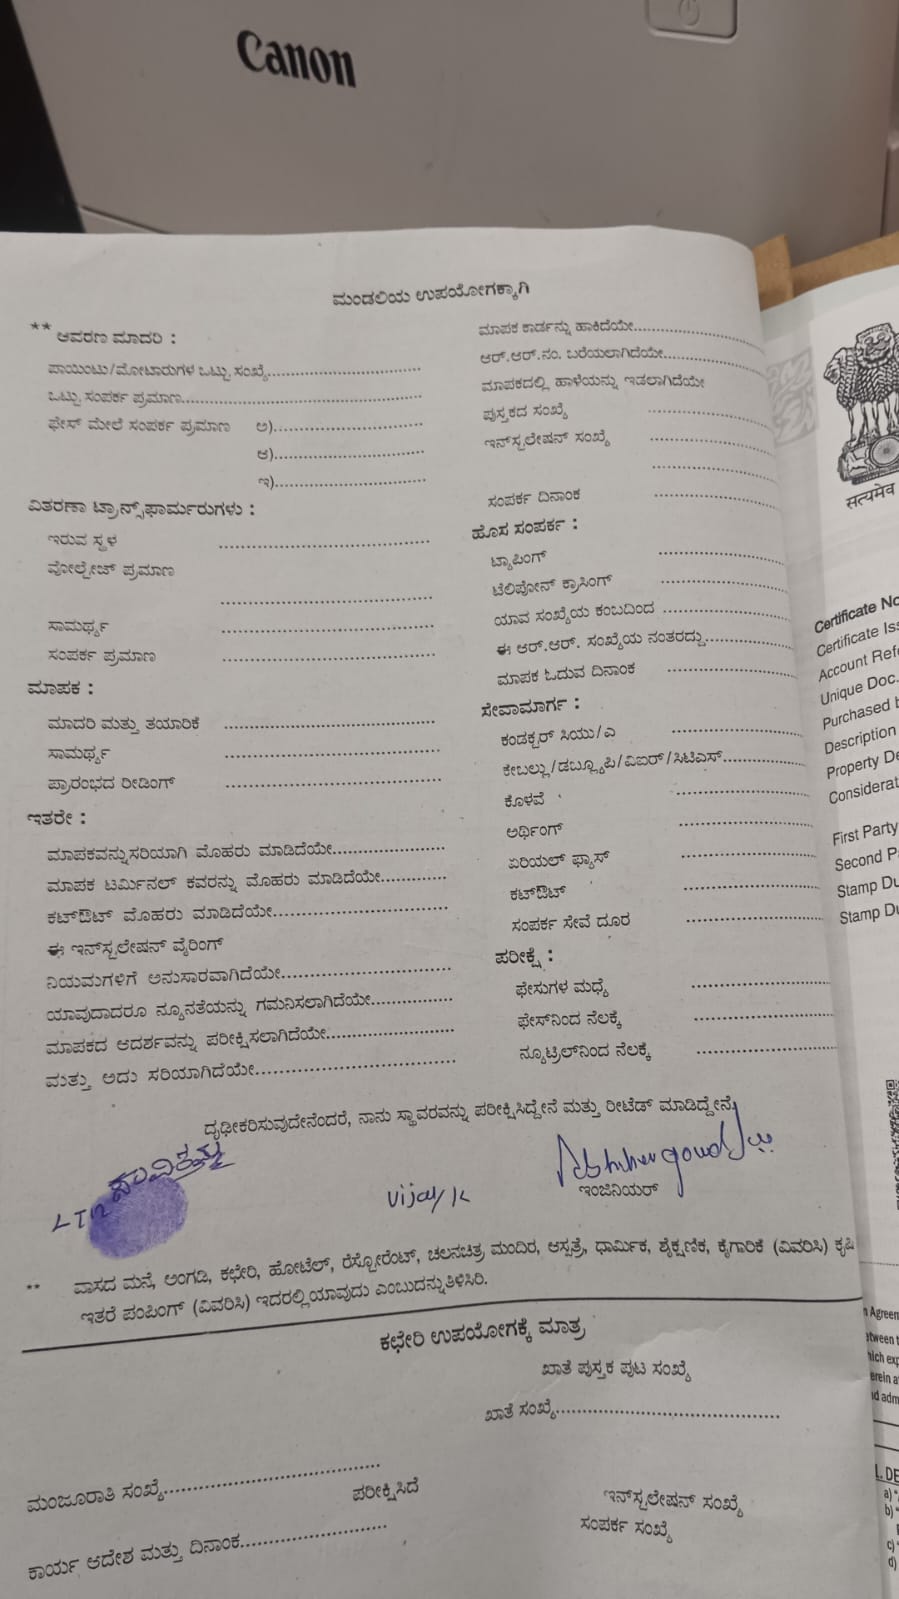 Canon
ಮಂಡಲಿಯ ಉಪಯೋಗಕ್ಕಾಗಿ
** ಆವರಣ ಮಾದರಿ :
ಪಾಯಿಂಟು/ಮೋಟಾರುಗಳ ಒಟ್ಟು ಸಂಖ್ಯೆ
ಒಟ್ಟು ಸಂಪರ್ಕ ಪ್ರಮಾಣ
ಫೇಸ್ ಮೇಲೆ ಸಂಪರ್ಕ ಪ್ರಮಾಣ ಅ)
ಆ)
ಇ)
ವಿತರಣಾ ಟ್ರಾನ್ಸ್‌ಫಾರ್ಮರುಗಳು :
ಇರುವ ಸ್ಥಳ
ವೋಲ್ಟೇಜ್ ಪ್ರಮಾಣ
ಸಾಮರ್ಥ್ಯ
ಸಂಪರ್ಕ ಪ್ರಮಾಣ
ಮಾಪಕ :
ಮಾದರಿ ಮತ್ತು ತಯಾರಿಕೆ
ಸಾಮರ್ಥ್ಯ
ಪ್ರಾರಂಭದ ರೀಡಿಂಗ್
ಇತರೇ :
ಮಾಪಕವನ್ನು ಸರಿಯಾಗಿ ಮೊಹರು ಮಾಡಿದೆಯೇ
ಮಾಪಕ ಟರ್ಮಿನಲ್ ಕವರನ್ನು ಮೊಹರು ಮಾಡಿದೆಯೇ
ಕಟ್‌ಔಟ್ ಮೊಹರು ಮಾಡಿದೆಯೇ
ಈ ಇನ್‌ಸ್ಟಲೇಷನ್ ವೈರಿಂಗ್
ನಿಯಮಗಳಿಗೆ ಅನುಸಾರವಾಗಿದೆಯೇ
ಯಾವುದಾದರೂ ನ್ಯೂನತೆಯನ್ನು ಗಮನಿಸಲಾಗಿದೆಯೇ
ಮಾಪಕದ ಆದರ್ಶವನ್ನು ಪರೀಕ್ಷಿಸಲಾಗಿದೆಯೇ
ಮತ್ತು ಅದು ಸರಿಯಾಗಿದೆಯೇ
ಮಾಪಕ ಕಾರ್ಡನ್ನು ಹಾಕಿದೆಯೇ
ಆರ್.ಆರ್.ನಂ. ಬರೆಯಲಾಗಿದೆಯೇ
ಮಾಪಕದಲ್ಲಿ ಹಾಳೆಯನ್ನು ಇಡಲಾಗಿದೆಯೇ
ಪುಸ್ತಕದ ಸಂಖ್ಯೆ
ಇನ್‌ಸ್ಟಲೇಷನ್ ಸಂಖ್ಯೆ
ಸಂಪರ್ಕ ದಿನಾಂಕ
ಹೊಸ ಸಂಪರ್ಕ :
ಟ್ಯಾಪಿಂಗ್
ಟೆಲಿಪೋನ್ ಕ್ರಾಸಿಂಗ್
ಯಾವ ಸಂಖ್ಯೆಯ ಕಂಬದಿಂದ
ಈ ಆರ್.ಆರ್. ಸಂಖ್ಯೆಯ ನಂತರದ್ದು
ಮಾಪಕ ಓದುವ ದಿನಾಂಕ
ಸೇವಾಮಾರ್ಗ :
ಕಂಡಕ್ಟರ್ ಸಿಯು/ಎ
ಕೇಬಲ್ಲು/ಡಬ್ಲ್ಯೂಪಿ/ವಿಐರ್/ಸಿಟಿಎಸ್
ಕೊಳವೆ
ಅರ್ಥಿಂಗ್
ಏರಿಯಲ್ ಫ್ಯೂಸ್
ಕಟ್‌ಔಟ್
ಸಂಪರ್ಕ ಸೇವೆ ದೂರ
ಪರೀಕ್ಷೆ :
ಫೇಸುಗಳ ಮಧ್ಯೆ
ಫೇಸ್‌ನಿಂದ ನೆಲಕ್ಕೆ
ನ್ಯೂಟ್ರಿಲ್‌ನಿಂದ ನೆಲಕ್ಕೆ
ದೃಢೀಕರಿಸುವುದೇನೆಂದರೆ, ನಾನು ಸ್ಥಾವರವನ್ನು ಪರೀಕ್ಷಿಸಿದ್ದೇನೆ ಮತ್ತು ರೀಟೆಡ್ ಮಾಡಿದ್ದೇನೆ.
Vijay K
ಇಂಜಿನಿಯರ್
** ವಾಸದ ಮನೆ, ಅಂಗಡಿ, ಕಛೇರಿ, ಹೋಟೆಲ್, ರೆಸ್ಟೋರೆಂಟ್, ಚಲನಚಿತ್ರ ಮಂದಿರ, ಆಸ್ಪತ್ರೆ, ಧಾರ್ಮಿಕ, ಶೈಕ್ಷಣಿಕ, ಕೈಗಾರಿಕೆ (ವಿವರಿಸಿ) ಕೃಷಿ
ಇತರೆ ಪಂಪಿಂಗ್ (ವಿವರಿಸಿ) ಇದರಲ್ಲಿ ಯಾವುದು ಎಂಬುದನ್ನು ತಿಳಿಸಿರಿ.
ಕಛೇರಿ ಉಪಯೋಗಕ್ಕೆ ಮಾತ್ರ
ಖಾತೆ ಪುಸ್ತಕ ಪುಟ ಸಂಖ್ಯೆ
ಖಾತೆ ಸಂಖ್ಯೆ
ಮಂಜೂರಾತಿ ಸಂಖ್ಯೆ
ಪರೀಕ್ಷಿಸಿದೆ
ಕಾರ್ಯ ಆದೇಶ ಮತ್ತು ದಿನಾಂಕ
ಇನ್‌ಸ್ಟಲೇಷನ್ ಸಂಖ್ಯೆ
ಸಂಪರ್ಕ ಸಂಖ್ಯೆ
सत्यमेव
Certificate No
Certificate Iss
Account Refe
Unique Doc.
Purchased b
Description
Property De
Considerat
First Party
Second Pa
Stamp Du
Stamp Du